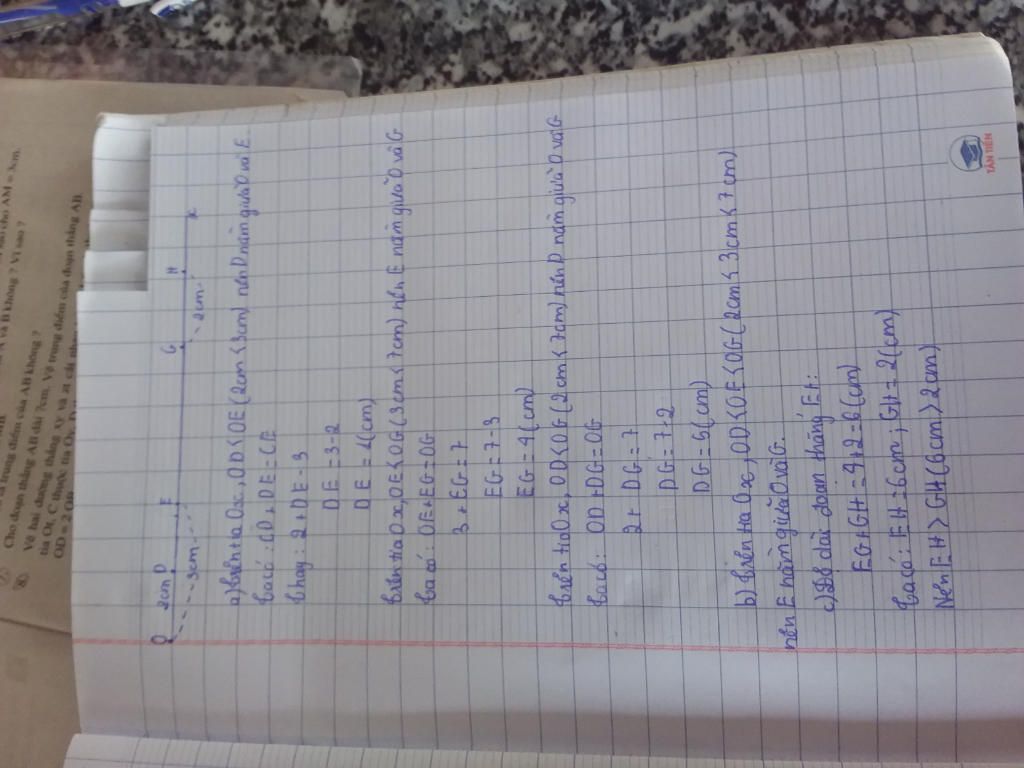 Cho đoạn thẳng AB dài 7cm. Vẽ trung điểm của đoạn thẳng AB
O 2cm D E G H x
3cm
2cm
a) trên tia Ox, OD < OE (2cm < 3cm) nên D nằm giữa O và E
ta có: OD + DE = OE
thay: 2 + DE = 3
DE = 3-2
DE = 1(cm)
trên tia Ox, OE < OG (3cm < 7cm) nên E nằm giữa O và G
ta có: OE + EG = OG
3 + EG = 7
EG = 7-3
EG = 4(cm)
trên tia Ox, OD < OG (2cm < 7cm) nên D nằm giữa O và G
ta có: OD + DG = OG
2 + DG = 7
DG = 7-2
DG = 5(cm)
b) trên tia Ox, OD < OE < OG (2cm < 3cm < 7cm)
nên E nằm giữa D và G.
c) Độ dài đoạn thẳng EH:
EG + GH = 4+2 = 6(cm)
ta có: EH = 6cm; GH = 2(cm)
Nên EH > GH (6cm > 2cm)
TÂN TIẾN